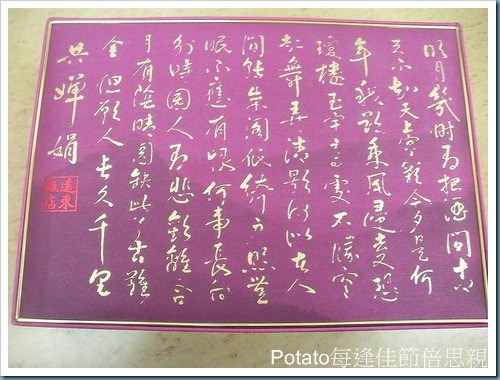 明月幾时有把酒問青
天不知天上宮闕今夕是何
年我欲乘風歸去又恐
瓊樓玉宇高處不勝寒
起舞弄清影何似在人
間轉朱閣低綺户照無
眠不應有恨何事長向
別時圓人有悲歡離合
月有陰晴圓缺此事古難
全但願人長久千里
共嬋娟
遠東
飯店
Potato每逢佳節倍思親